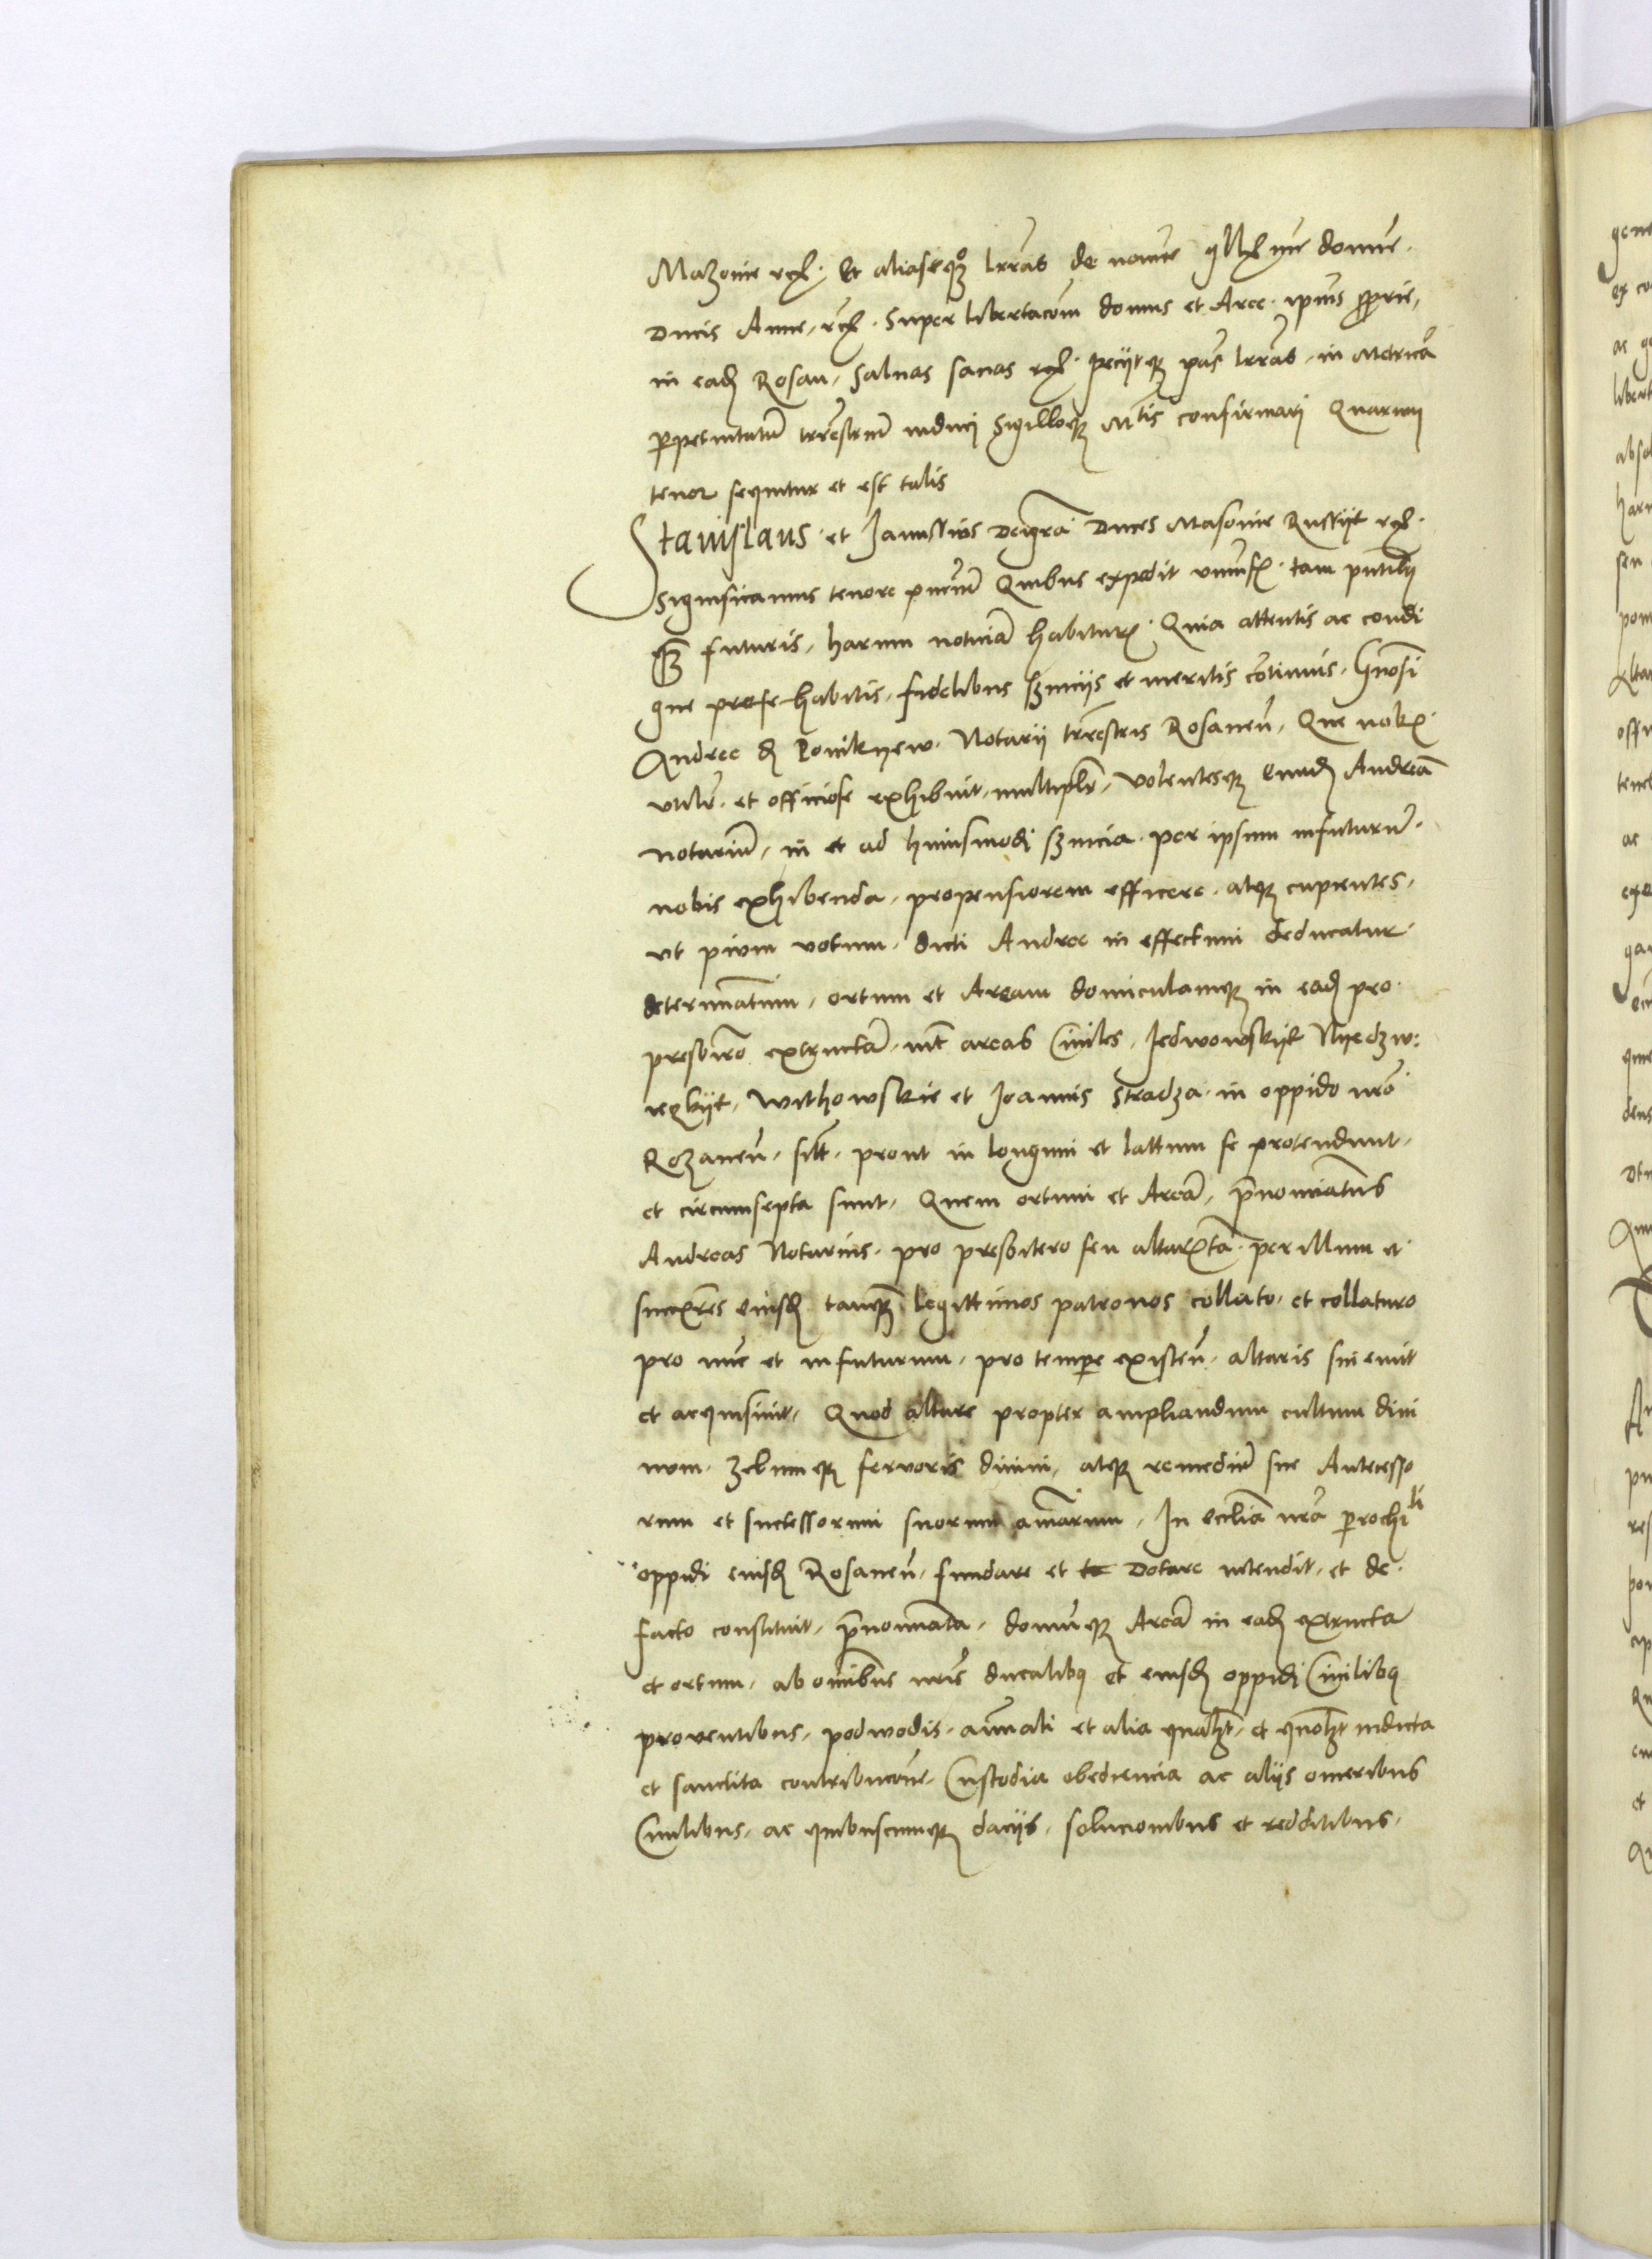 Mazovie rex. Et aliasequo lrras de nomine Illme domine
Ducis Anne, rex. super libertacom domus et Aree ipius proprie,
in eadem Rosan, saluas sanas rex. peciitque pns lrras in Metrica
perpetuitatum trrestrium induci sigilloque Mtis confirmari Quarum
tenor sequitur et est talis
Stanislaus et Janussius Dei gra Duces Masovie Russije rex.
Significamus tenore pncium Quibus expedit vniuersis tam pntibus
quam futuris, harum noticiam habituris. Quia attentis ac condi
gne prefe habitis, fidelibus seruiciis et meritis continuis, Gnosi
Andree de Ponikyew Notarij trrestris Rosanen, Que nobis
vtilr et officiose exhibuit multiplr, volentesque eundem Andream
notarium, in et ad huiusmodi seruicia per ipsum infuturum
nobis exhibenda, propensiorem efficere atque cupientes,
vt pium votum dicti Andree in effectum deducatur
determinatum, ortum et Aream domiculamque in eadem pro
presbitro extructam, int areas Ciuiles, Jedwowskije Nyedzw:
yezkije, Withowskie et Joannis Stradza in oppido nro
Rozanen, sitt. prout in longum et lattum se protendunt,
et circumsepta sunt, Quem ortum et Aream, prenominatus
Andreas Notarius pro presbitero seu altarista per illum et
successores eiusdem tanquam legittimos patronos collato et collaturo
pro nunc et infuturum, pro tempore existen. altaris sui emit
et acquisiuit, Quod altare propter ampliandum cultum diui
num zelumque fervoris diuini, atque remedium sue Antecesso
rum et successorum suorum animarum, In ecclia nra parochili
oppidi eiusdem Rosanen, fundare et te Dotare intendit, et de
facto constituit, prenominata, domumque Aream in eadem extructa
et ortum, ab omibus nris ducalibus et eiusdem oppidi Ciuilibus
proventibus, podwodis, annali et alia qualibet, et quolibet indicta
et sanctita contribucione, Custodia obediencia ac alijs omeribus
Ciuilibus, ac quibuscumque dacijs, solucionibus et redditibus